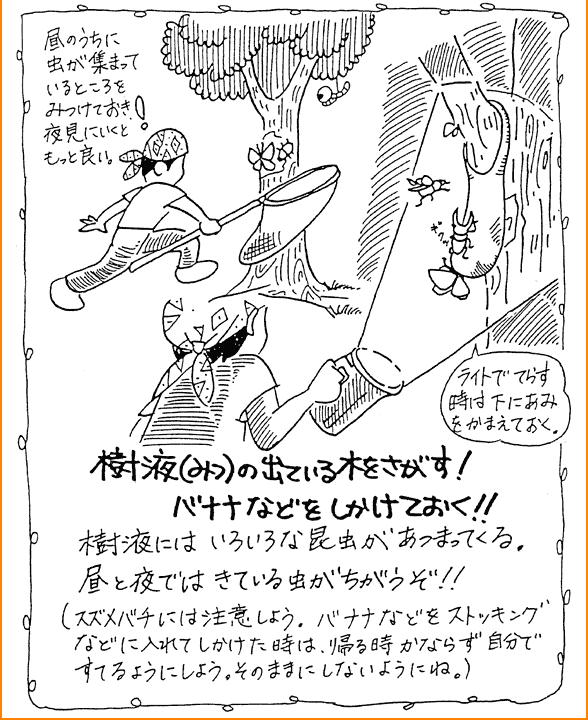 昼のうちに
虫が集まって
いるところを
みつけておき
夜見にいくと
もっと良い。!
ライトでてらす
時は下にあみ
をかまえておく。
樹液(みつ)の出ている木をさがす!
バナナなどをしかけておく!!
樹液にはいろいろな昆虫があつまってくる。
昼と夜ではきている虫がちがうぞ!!
(スズメバチには注意しよう。バナナなどをストッキング
などに入れてしかけた時は、帰る時かならず自分で
すてるようにしよう。そのままにしないようにね。)